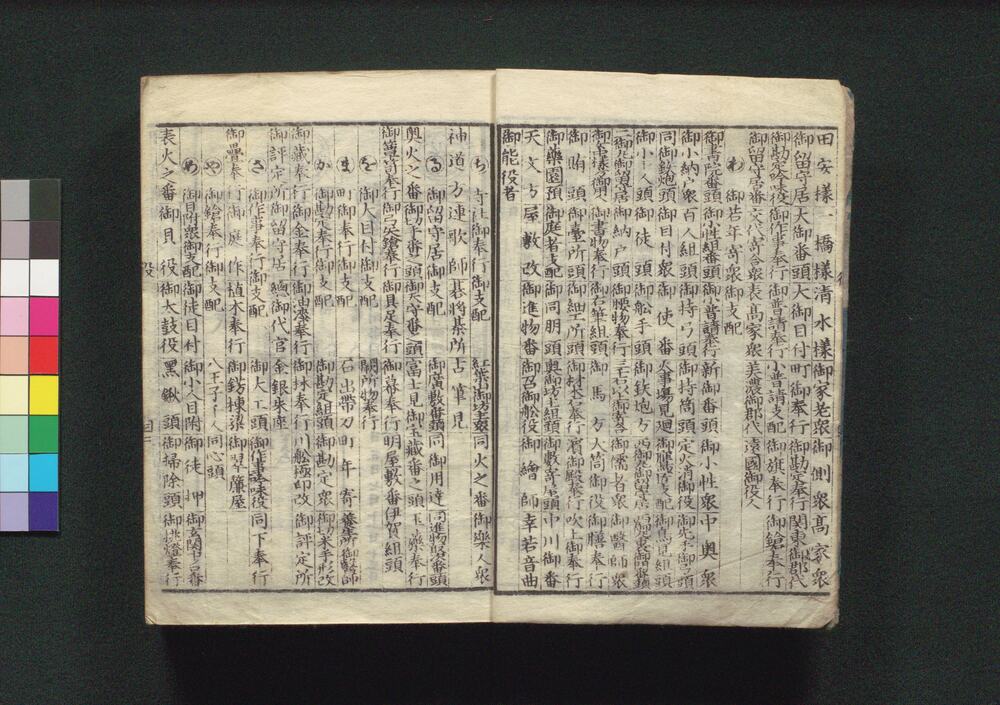 田安様一橋様清水様御家老衆御側衆高家衆
御留守居大御番頭大御目付町御奉行御勘定奉行関東御郡代
御勘定吟味役御作事奉行御普請奉行小普請支配御旗奉行御鎗奉行
御留守居番交代寄合衆表高家衆美濃御郡代遠國御役人
わ 御若年寄衆御支配
御書院番頭御小性組番頭御小普請奉行新御番頭御小性衆中奥衆
御小納戸衆百人組頭御持弓頭御持筒頭定火消御役御先手御弓頭
同御鉄炮頭御目付衆御使番火事場見廻御鷹匠支配御鳥見組頭
御小人頭御徒頭御舩手頭御鉄炮方西御丸御留守居
二御丸御留守居御納戸頭御腰物奉行御儒者衆御醫師衆
御書物奉行御右筆組頭御馬方大筒御役御膳奉行
御賄頭御臺所頭御細工所頭御材木奉行濱御殿奉行吹上御奉行
御藥園預御庭者支配御同朋頭奥御坊主組頭御數寄屋頭中川御番
天文方屋敷改御進物番御召御舩役御繪師幸若音曲
御能役者
ち 寺社御奉行御支配 紅葉山御坊主衆同火之番御樂人衆
神道方連歌師碁将棊所古筆見
る 御留守居御支配 御廣敷番頭同御用達同進物取次番頭
奥火之番御切手番之頭御天守番之頭富士見御宝藏番之頭玉藥奉行
御箪笥奉行御弓矢鎗奉行御具足奉行御幕奉行明屋敷番伊賀組頭
を 御大目付御支配 闕所物奉行
ま 町御奉行御支配 石出帯刀町年寄養生所御醫師
か 御勘定奉行御支配 御勘定組頭御勘定衆御米手形改
御藏奉行御金奉行御油漆奉行御林奉行川舩極印改御評定所
御評定所御留守居御代官金銀朱座
さ 御作事奉行御支配 御大工頭御作事吟味役同下奉行
御疊奉行御庭作植木奉行御錺棟梁御翠簾屋
や 御鎗奉行御支配 八王子千人同心頭
め 御目附衆御支配御徒目付御小人目附御徒押御玄関番
表火之番御貝役御太鼓役黒鍬頭御掃除頭御挑燈奉行